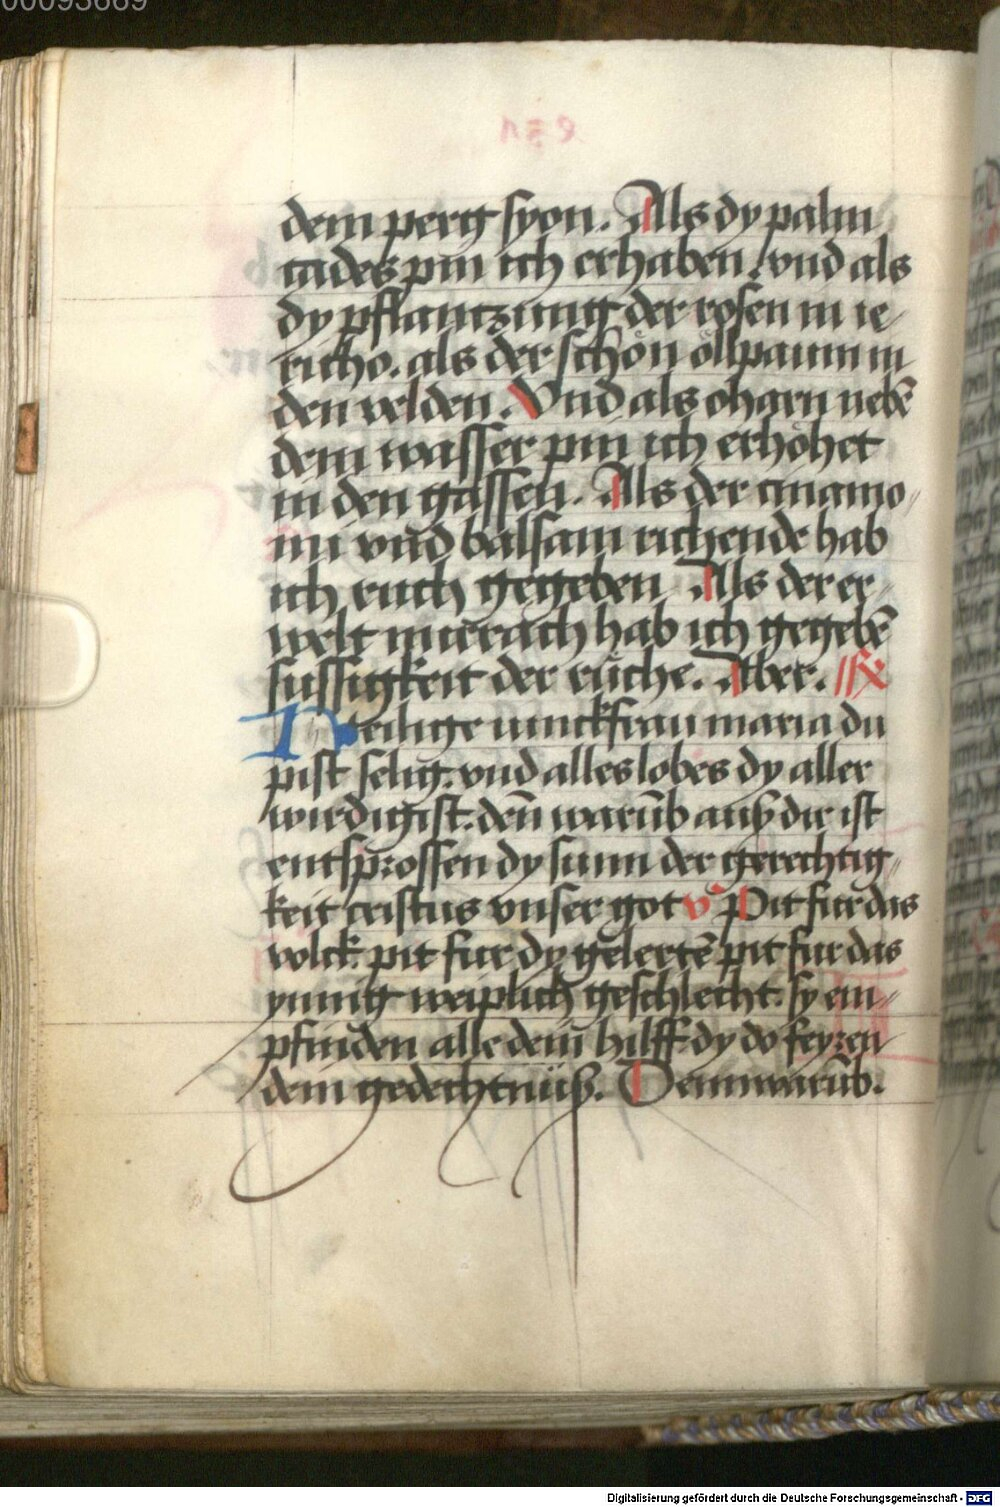 00093669
dem perg syon. Als dy palm
cades pin ich erhaben. vnd als
dy pflantzung der rosen in ie/
richo. als der schön öllpaum in
den velden. Vnd als ohorn nebē
dem wasser pin ich erhöhet
in den gassen. Als der cinamo//
mi vnd balsam richende hab
ich ruch gegeben Als der er//
welt mirrach hab ich gegebē
sussigkeit der rüche. Aber. 
Heilige iunckfrau maria du
pist selig. vnd alles lobes dy aller
wirdigist. den̄ warūb auß dir ist
entsprossen dy sunn der gerechtig//
keit cristus vnser got v̊ Pit für das
volck. pit fur dy gelertē pit fur das
ynnig weiplich geschlecht. sy em//
pfinden alle dein hilff. dy do feyren
dein gedechtnüß. Denn warūb.
Digitalisierung gefördert durch die Deutsche Forschungsgemeinschaft - DFG